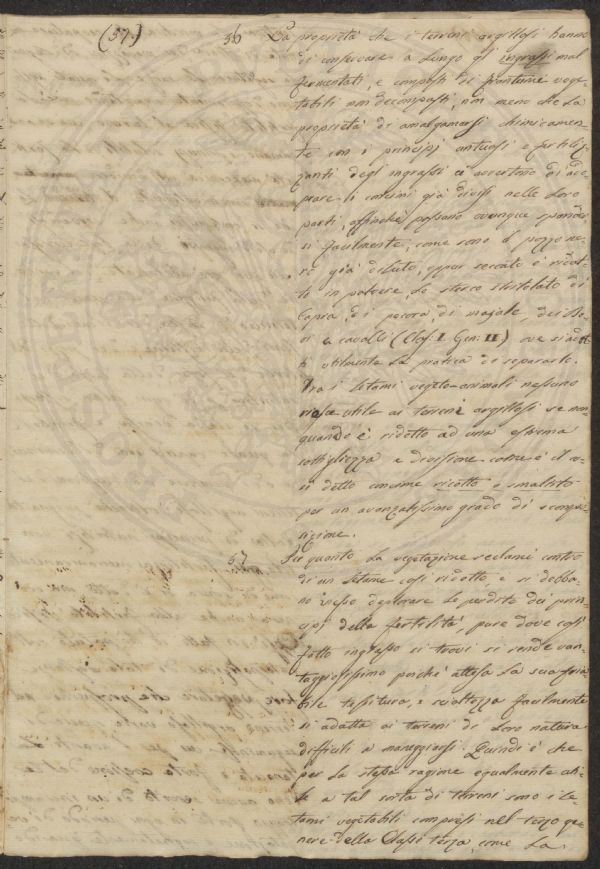 (57.)
56 La proprietà che i terreni argillosi hanno
di conservare a lungo gl' ingrassi mal
fermentati, e composti di frantumi vege-
tabili non decomposti, non meno che la
proprietà di amalgamarsi chimicamen-
te con i principj untuosi e fertiliz-
zanti degl ingrassi ci avvertono di ado-
prare i concimi già divisi nelle loro
parti, affinchè possano ovunque spander-
si facilmente, come sono il pozzo ne-
ro già diluto, oppur seccato e ridot-
to in polvere, lo sterco stritolato di
Capra, di pecora, di majale, dei Bo-
vi e cavalli (Clas. I. Gen. II) ove siavi
utilmente la pratica di separarlo.
Tra i letami vegeto-animali nessuno
riesce utile ai terreni argillosi se non
quando è ridotto ad una estrema
sottigliezza e divisione come è il co-
sì detto concime ricotto o smaltito
per un avanzatissimo grado di scompo-
sizione.
57 Per quanto la vegetazione reclami contro
di un letame così ridotto, e si debba-
no spesso deplorare le perdite dei prin-
cipj della fertilità, pure dove così
fatto ingrasso si trovi si rende van-
taggiosissimo poichè attesa la sua fria-
bile tessitura, e scioltezza facilmente
si adatta ai terreni di loro natura
difficili a maneggiarsi. Quindi è che
per la stessa ragione egualmente uti-
le a tal sorta di terreni sono i le-
tami vegetabili compresi nel terzo ge-
nere della Classe terza, come la